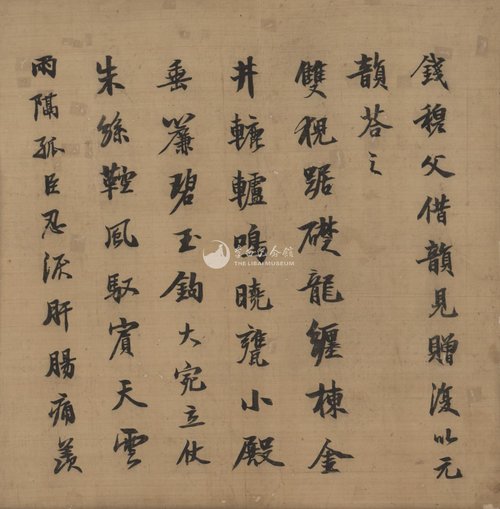 錢穆父借韻見贈復以元
韻答之
雙猊踞礎龍纏棟金
井轆轤鳴曉甕小殿
垂簾碧玉鉤大宛立仗
朱絲鞚風馭賓天雲
雨隔孤臣忍淚肝腸痛羨
THE LIBAI MUSEUM